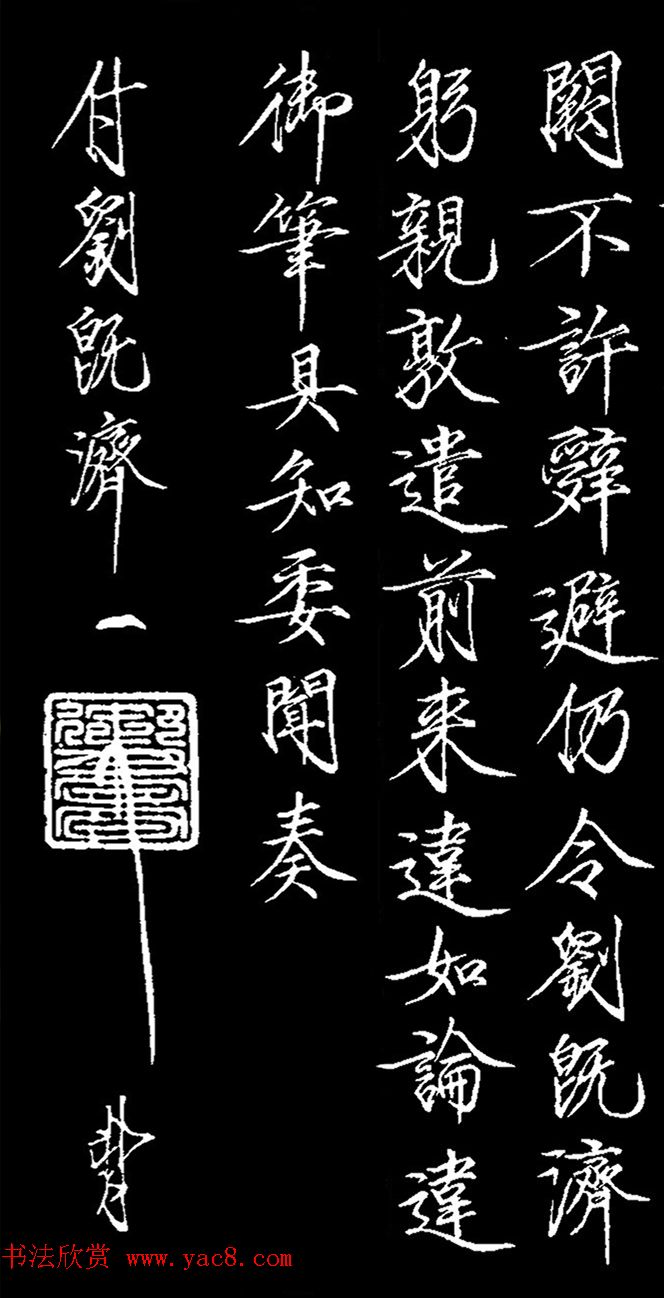 闕不許辭避仍令劉旣濟
躬親敦遣前来違如論違
御筆具知委聞奏
付劉旣濟
书法欣赏 www.yac8.com